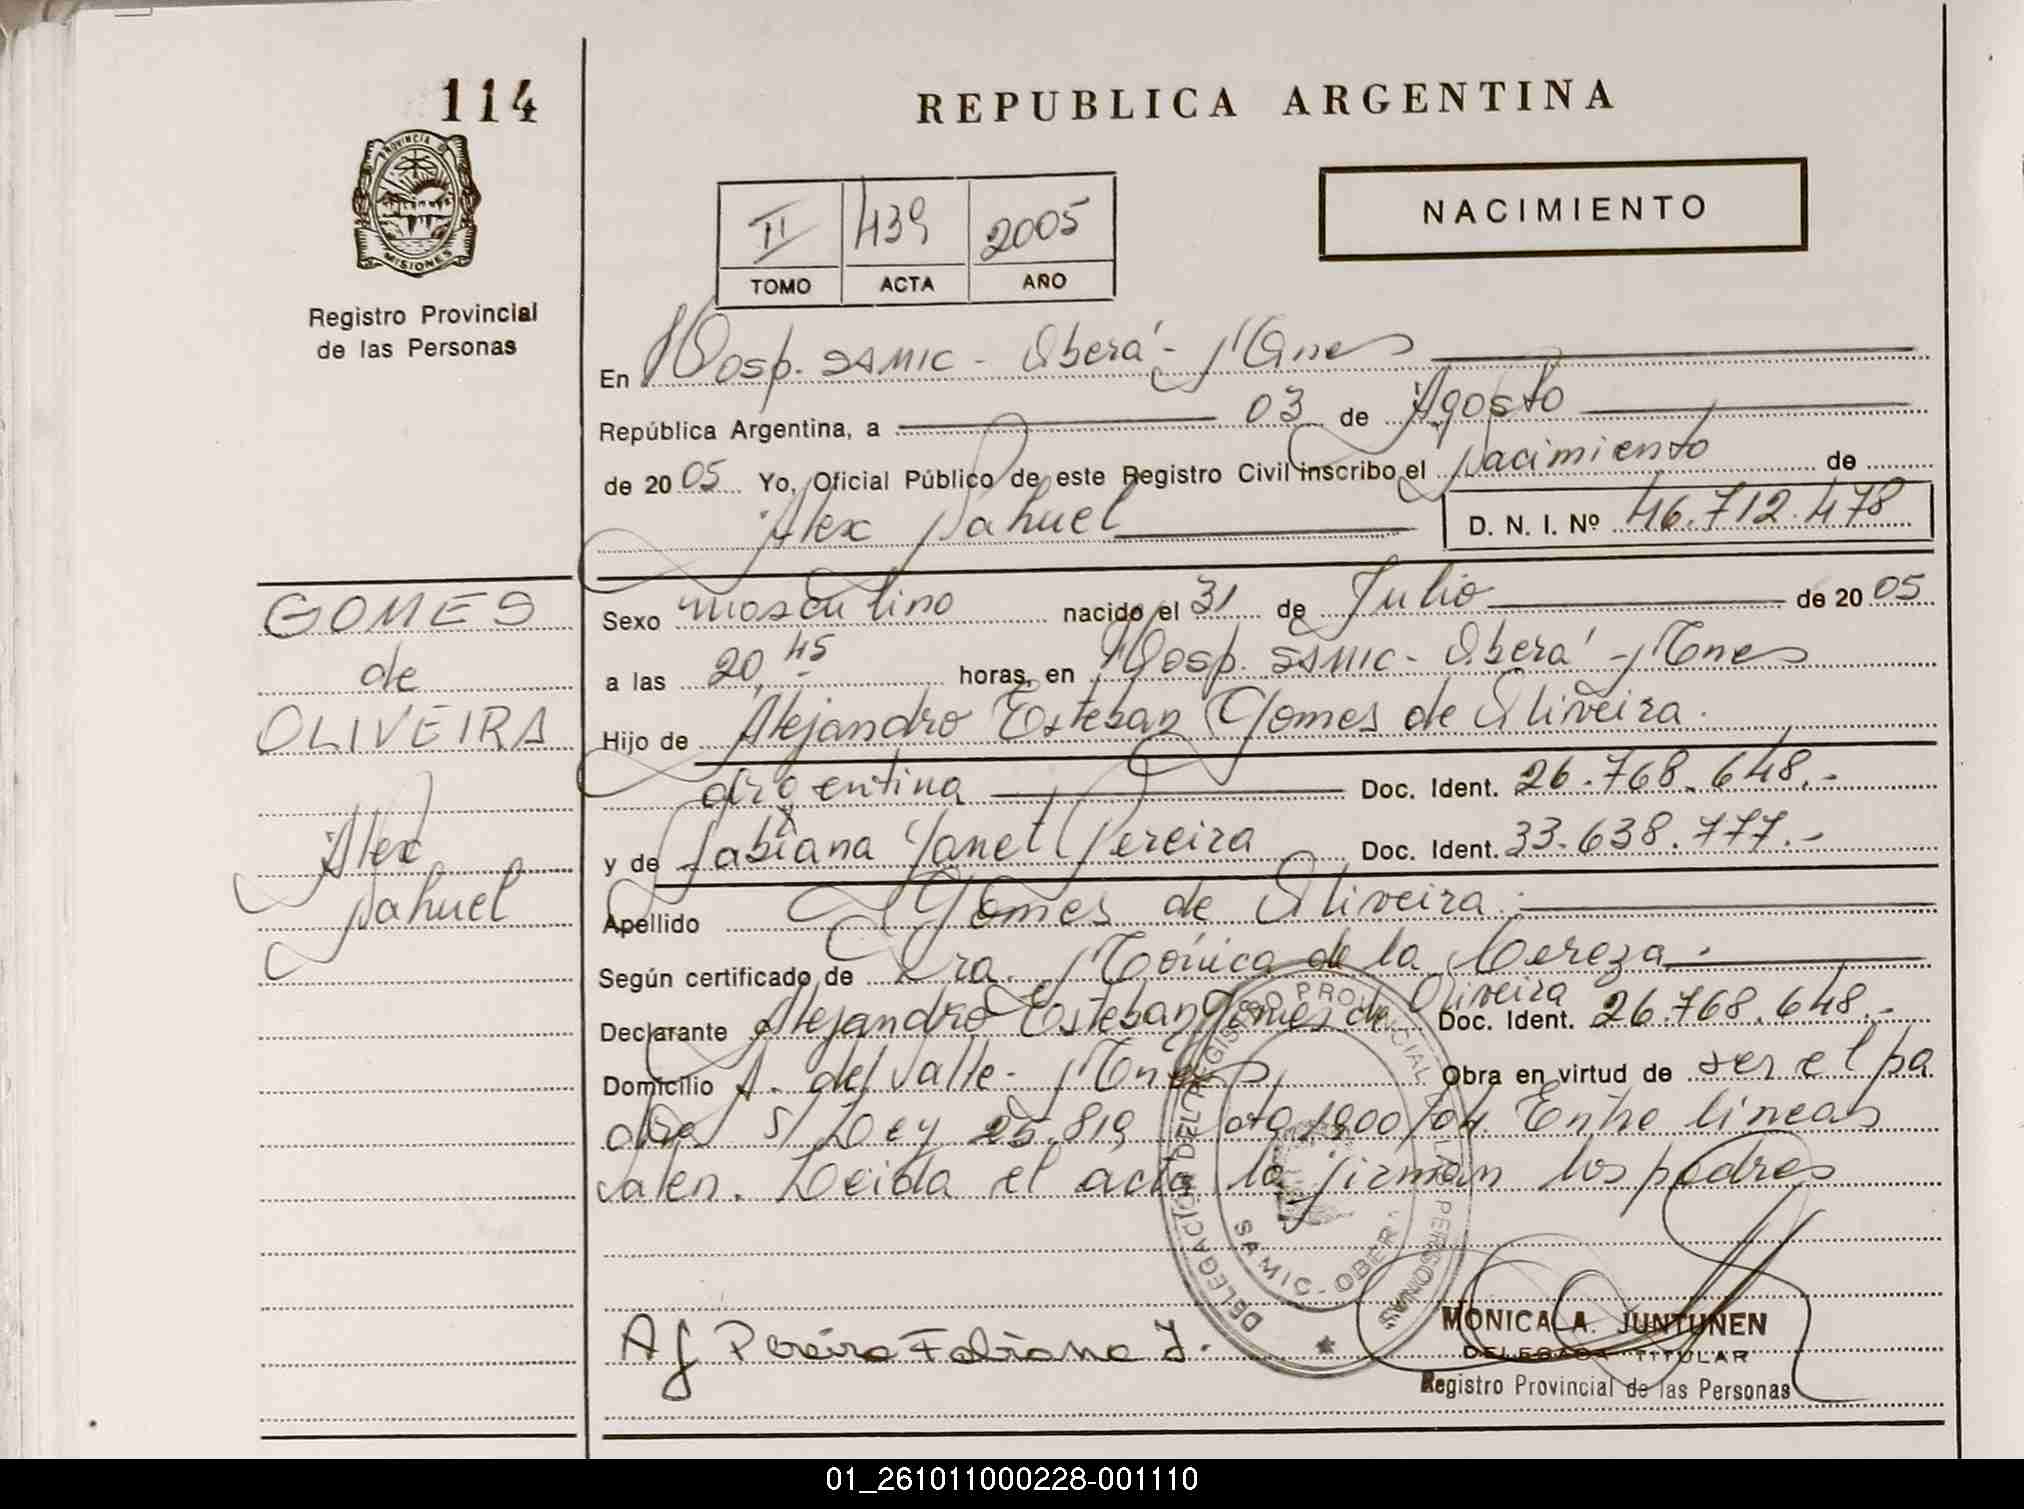 114
PROVINCIA DE
MISIONES
Registro Provincial
de las Personas
REPUBLICA ARGENTINA
II 439 2005
TOMO ACTA AÑO
NACIMIENTO
En Hosp. SAMIC - Oberá - Mnes
República Argentina, a 03 de Agosto
de 2005 Yo, Oficial Público de este Registro Civil inscribo el Nacimiento de
Alex Nahuel D. N. I. Nº 46.712.478
GOMES
de
OLIVEIRA
Alex
Nahuel
Sexo masculino nacido el 31 de Julio de 2005
a las 20,45 horas, en Hosp. SAMIC - Oberá - Mnes
Hijo de Alejandro Esteban Gomes de Oliveira.
argentina Doc. Ident. 26.768.648.-
y de Fabiana Yanet Pereira Doc. Ident. 33.638.777.-
Apellido Gomes de Oliveira.
Según certificado de Dra. Mónica de la Cereza.
Declarante Alejandro Esteban Gomes de Oliveira Doc. Ident. 26.768.648.-
Domicilio A. del Valle - Mnes Obra en virtud de ser el pa
dre s/ Ley 25.819 Nota 1900/04. Entre lineas
valen. Leída el acta la firman los padres
DELEGACION DEL REGISTRO PROVINCIAL DE LAS PERSONAS
SAMIC - OBERA
Pereira Fabiana Y.
MONICA A. JUNTUNEN
DELEGADA TITULAR
Registro Provincial de las Personas
01_261011000228-001110